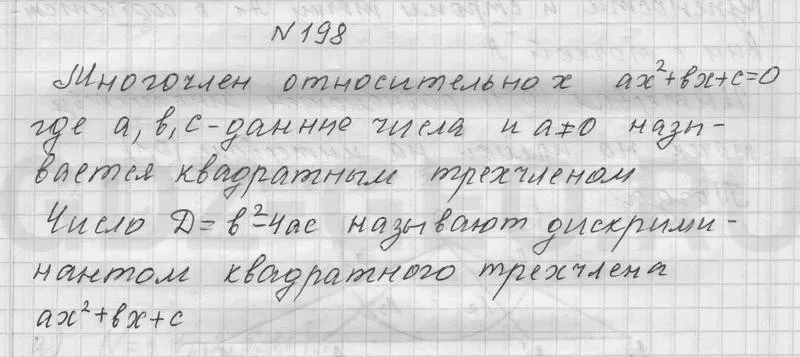 N198
Многочлен относительно x ax²+вx+c=0
где a, в, c - данние числа и a≠0 назы-
вается квадратным трехчленом
Число D= в²-4ac называют дискрими-
нантом квадратного трехчлена
ax²+вx+c